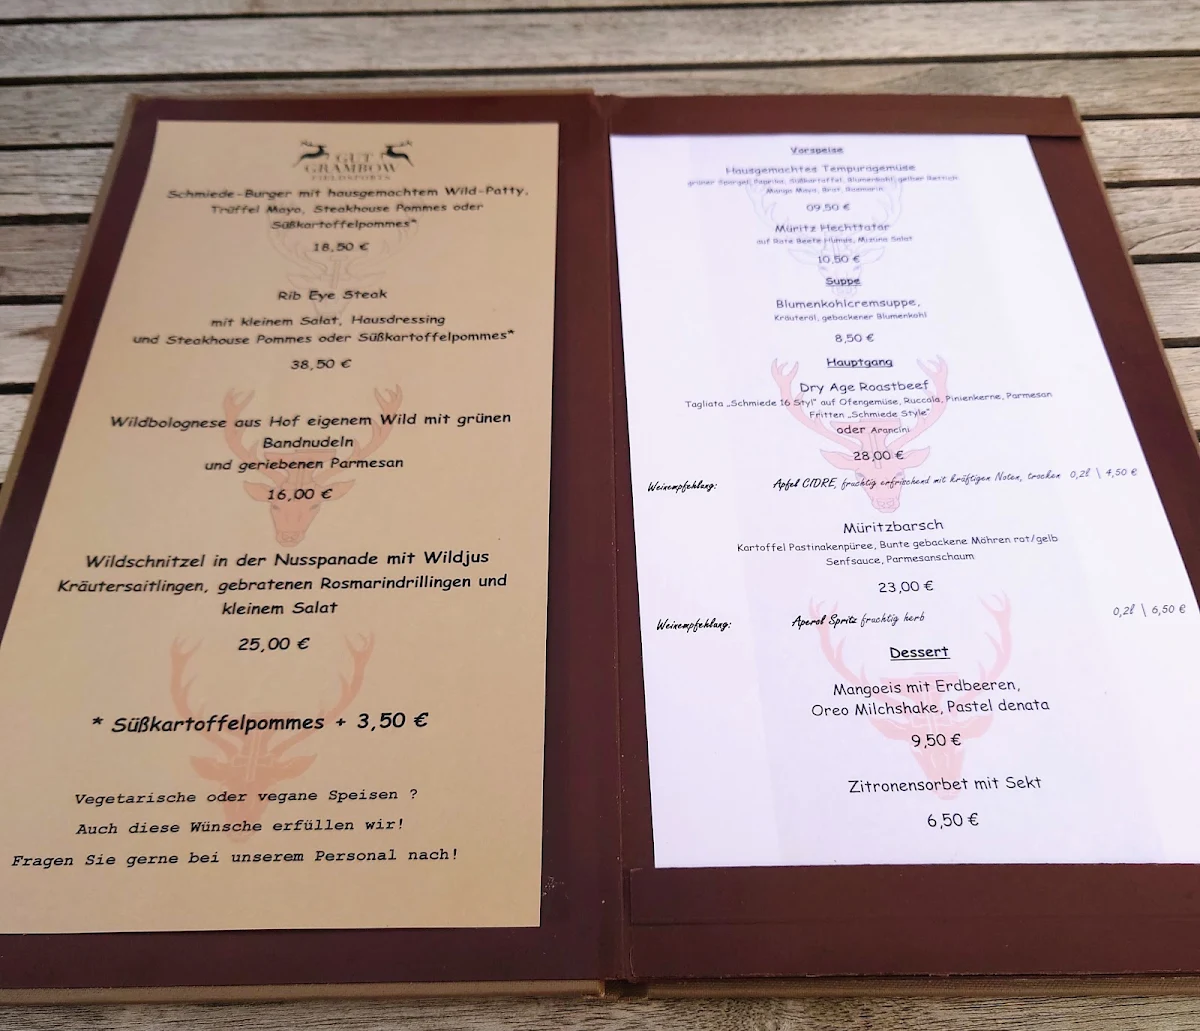 GUT
GRAMBOW
FIELDSPORTS
Schmiede-Burger mit hausgemachtem Wild-Patty,
Trüffel Mayo, Steakhouse Pommes oder
Süßkartoffelpommes*
18,50 €
Rib Eye Steak
mit kleinem Salat, Hausdressing
und Steakhouse Pommes oder Süßkartoffelpommes*
38,50 €
Wildbolognese aus Hof eigenem Wild mit grünen
Bandnudeln
und geriebenen Parmesan
16,00 €
Wildschnitzel in der Nusspanade mit Wildjus
Kräutersaitlingen, gebratenen Rosmarindrillingen und
kleinem Salat
25,00 €
* Süßkartoffelpommes + 3,50 €
Vegetarische oder vegane Speisen ?
Auch diese Wünsche erfüllen wir!
Fragen Sie gerne bei unserem Personal nach!
Vorspeise
Hausgemachtes Tempuragemüse
grüner Spargel, Paprika, Süßkartoffel, Blumenkohl, gelber Rettich
Mango Mayo, Brot, Rosmarin
09,50 €
Müritz Hechttatar
auf Rote Beete Mizuna Salat
10,50 €
Suppe
Blumenkohlcremsuppe,
Kräuteröl, gebackener Blumenkohl
8,50 €
Hauptgang
Dry Age Roastbeef
Tagliata „Schmiede 16 Styl" auf Ofengemüse, Ruccola, Pinienkerne, Parmesan
Fritten „Schmiede Style"
oder Arancini
28,00 €
Weinempfehlung: Apfel CIDRE, fruchtig erfrischend mit kräftigen Noten, trocken 0,2l | 4,50 €
Müritzbarsch
Kartoffel Pastinakenpüree, Bunte gebackene Möhren rot/gelb
Senfsauce, Parmesanschaum
23,00 €
Weinempfehlung: Aperol Spritz fruchtig herb 0,2l | 6,50 €
Dessert
Mangoeis mit Erdbeeren,
Oreo Milchshake, Pastel denata
9,50 €
Zitronensorbet mit Sekt
6,50 €